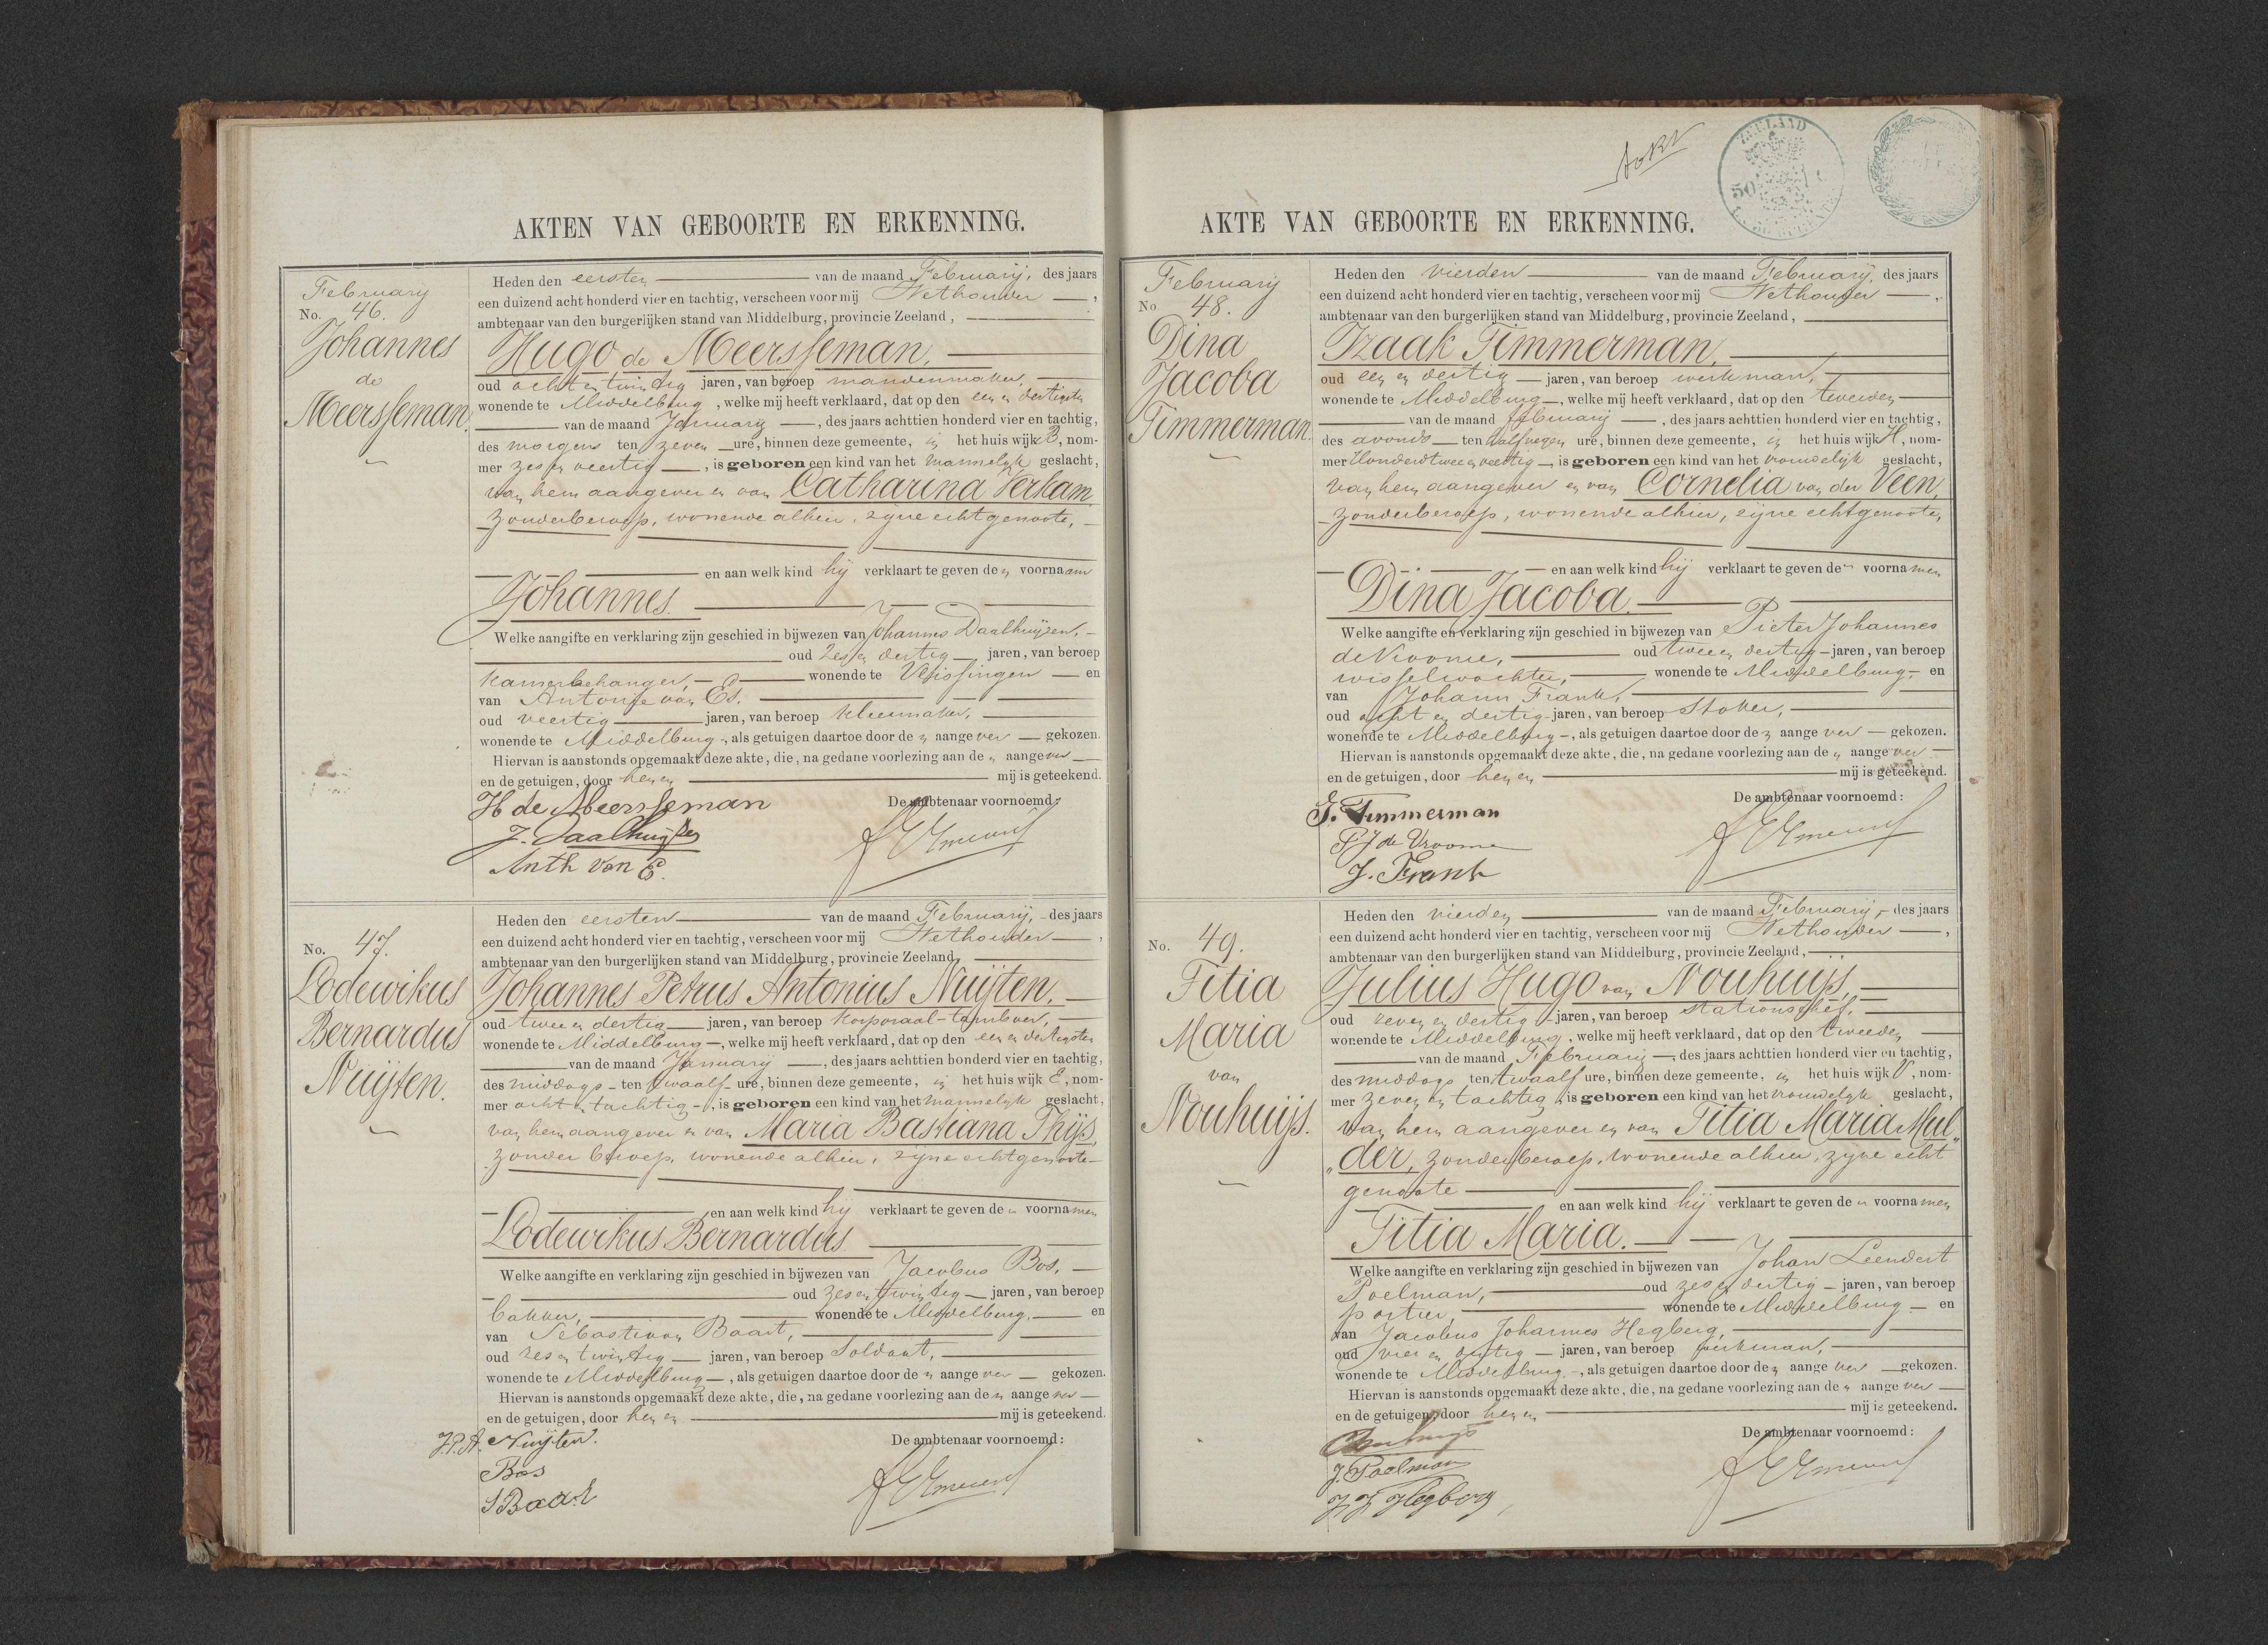 AKTEN VAN GEBOORTE EN ERKENNING.
February
No. 46.
Johannes
de
Meersseman.
Heden den eersten van de maand February, des jaars
een duizend acht honderd vier en tachtig, verscheen voor mij Wethouder,
ambtenaar van den burgerlijken stand van Middelburg, provincie Zeeland,
Hugo de Meersseman,
oud acht en twintig jaren, van beroep mandenmaker,
wonende te Middelburg, welke mij heeft verklaard, dat op den een en dertigsten
van de maand January, des jaars achttien honderd vier en tachtig,
des morgens ten zeven ure, binnen deze gemeente, in het huis wijk B, nom-
mer zes en veertig, is geboren een kind van het mannelijk geslacht,
van hem aangever en van Catharina Verkam,
zonder beroep, wonende alhier, zijne echtgenoote,
en aan welk kind hij verklaart te geven den voornaam
Johannes.
Welke aangifte en verklaring zijn geschied in bijwezen van Johannes Daalhuijzen,
oud zes en dertig jaren, van beroep
kamerbehanger, wonende te Vlissingen en
van Antonije van Es,
oud veertig jaren, van beroep kleermaker,
wonende te Middelburg, als getuigen daartoe door den aangever gekozen.
Hiervan is aanstonds opgemaakt deze akte, die, na gedane voorlezing aan den aangever
en de getuigen, door hen en mij is geteekend.
H de Meersseman
De ambtenaar voornoemd:
J. Daalhuijzen
Anth van E.
No. 47.
Lodewikus
Bernardus
Nuijten.
Heden den eersten van de maand February, des jaars
een duizend acht honderd vier en tachtig, verscheen voor mij Wethouder,
ambtenaar van den burgerlijken stand van Middelburg, provincie Zeeland,
Johannes Petrus Antonius Nuijten,
oud twee en dertig jaren, van beroep korporaal-tamboer,
wonende te Middelburg, welke mij heeft verklaard, dat op den een en dertigsten
van de maand January, des jaars achttien honderd vier en tachtig,
des middags ten twaalf ure, binnen deze gemeente, in het huis wijk E, nom-
mer acht en tachtig, is geboren een kind van het mannelijk geslacht,
van hem aangever en van Maria Bastiana Thijs,
zonder beroep, wonende alhier, zijne echtgenoote
en aan welk kind hij verklaart te geven de voornamen
Lodewikus Bernardus
Welke aangifte en verklaring zijn geschied in bijwezen van Jacobus Bos,
oud zes en twintig jaren, van beroep
bakker, wonende te Middelburg, en
van Sebastiaan Baart,
oud zes en twintig jaren, van beroep Soldaat,
wonende te Middelburg, als getuigen daartoe door den aangever gekozen.
Hiervan is aanstonds opgemaakt deze akte, die, na gedane voorlezing aan den aangever
en de getuigen, door hen en mij is geteekend.
J.P.A. Nuijten.
De ambtenaar voornoemd:
Bos
S Baart
ZEELAND
50
AKTE VAN GEBOORTE EN ERKENNING.
February
No 48.
Dina
Jacoba
Timmerman.
Heden den vierden van de maand February, des jaars
een duizend acht honderd vier en tachtig, verscheen voor mij Wethouder,
ambtenaar van den burgerlijken stand van Middelburg, provincie Zeeland,
Izaak Timmerman,
oud een en dertig jaren, van beroep werkman,
wonende te Middelburg, welke mij heeft verklaard, dat op den tweeden
van de maand february, des jaars achttien honderd vier en tachtig,
des avonds ten half negen ure, binnen deze gemeente, in het huis wijk H, nom-
mer Honderd twee en veertig, is geboren een kind van het vrouwelijk geslacht,
van hem aangever en van Cornelia van der Veen,
zonder beroep, wonende alhier, zijne echtgenoote,
en aan welk kind hij verklaart te geven de voornamen
Dina Jacoba.
Welke aangifte en verklaring zijn geschied in bijwezen van Pieter Johannes
de Vroome, oud twee en dertig jaren, van beroep
wisselwachter, wonende te Middelburg en
van Johann Frank,
oud acht en dertig jaren, van beroep Stoker,
wonende te Middelburg, als getuigen daartoe door den aangever gekozen.
Hiervan is aanstonds opgemaakt deze akte, die, na gedane voorlezing aan den aangever
en de getuigen, door hen en mij is geteekend.
J. Timmerman
De ambtenaar voornoemd:
P J de Vroome
J. Frank
No. 49.
Titia
Maria
van
Nouhuijs.
Heden den vierden van de maand February, des jaars
een duizend acht honderd vier en tachtig, verscheen voor mij Wethouder,
ambtenaar van den burgerlijken stand van Middelburg, provincie Zeeland,
Julius Hugo van Nouhuijs,
oud zeven en dertig jaren, van beroep stationschef,
wonende te Middelburg, welke mij heeft verklaard, dat op den tweeden
van de maand February, des jaars achttien honderd vier en tachtig,
des middags ten twaalf ure, binnen deze gemeente, in het huis wijk V, nom-
mer zeven en tachtig is geboren een kind van het vrouwelijk geslacht,
van hem aangever en van Titia Maria Mul„
„der, zonder beroep, wonende alhier, zijne echt
genoote
en aan welk kind hij verklaart te geven de voornamen
Titia Maria.
Welke aangifte en verklaring zijn geschied in bijwezen van Johan Leendert
Poelman, oud zes en dertig jaren, van beroep
portier, wonende te Middelburg en
van Jacobus Johannes Hegberg,
oud vier en dertig jaren, van beroep werkman,
wonende te Middelburg, als getuigen daartoe door den aangever gekozen.
Hiervan is aanstonds opgemaakt deze akte, die, na gedane voorlezing aan den aangever
en de getuigen, door hen en mij is geteekend.
De ambtenaar voornoemd:
J. Poelman
J J Hegberg